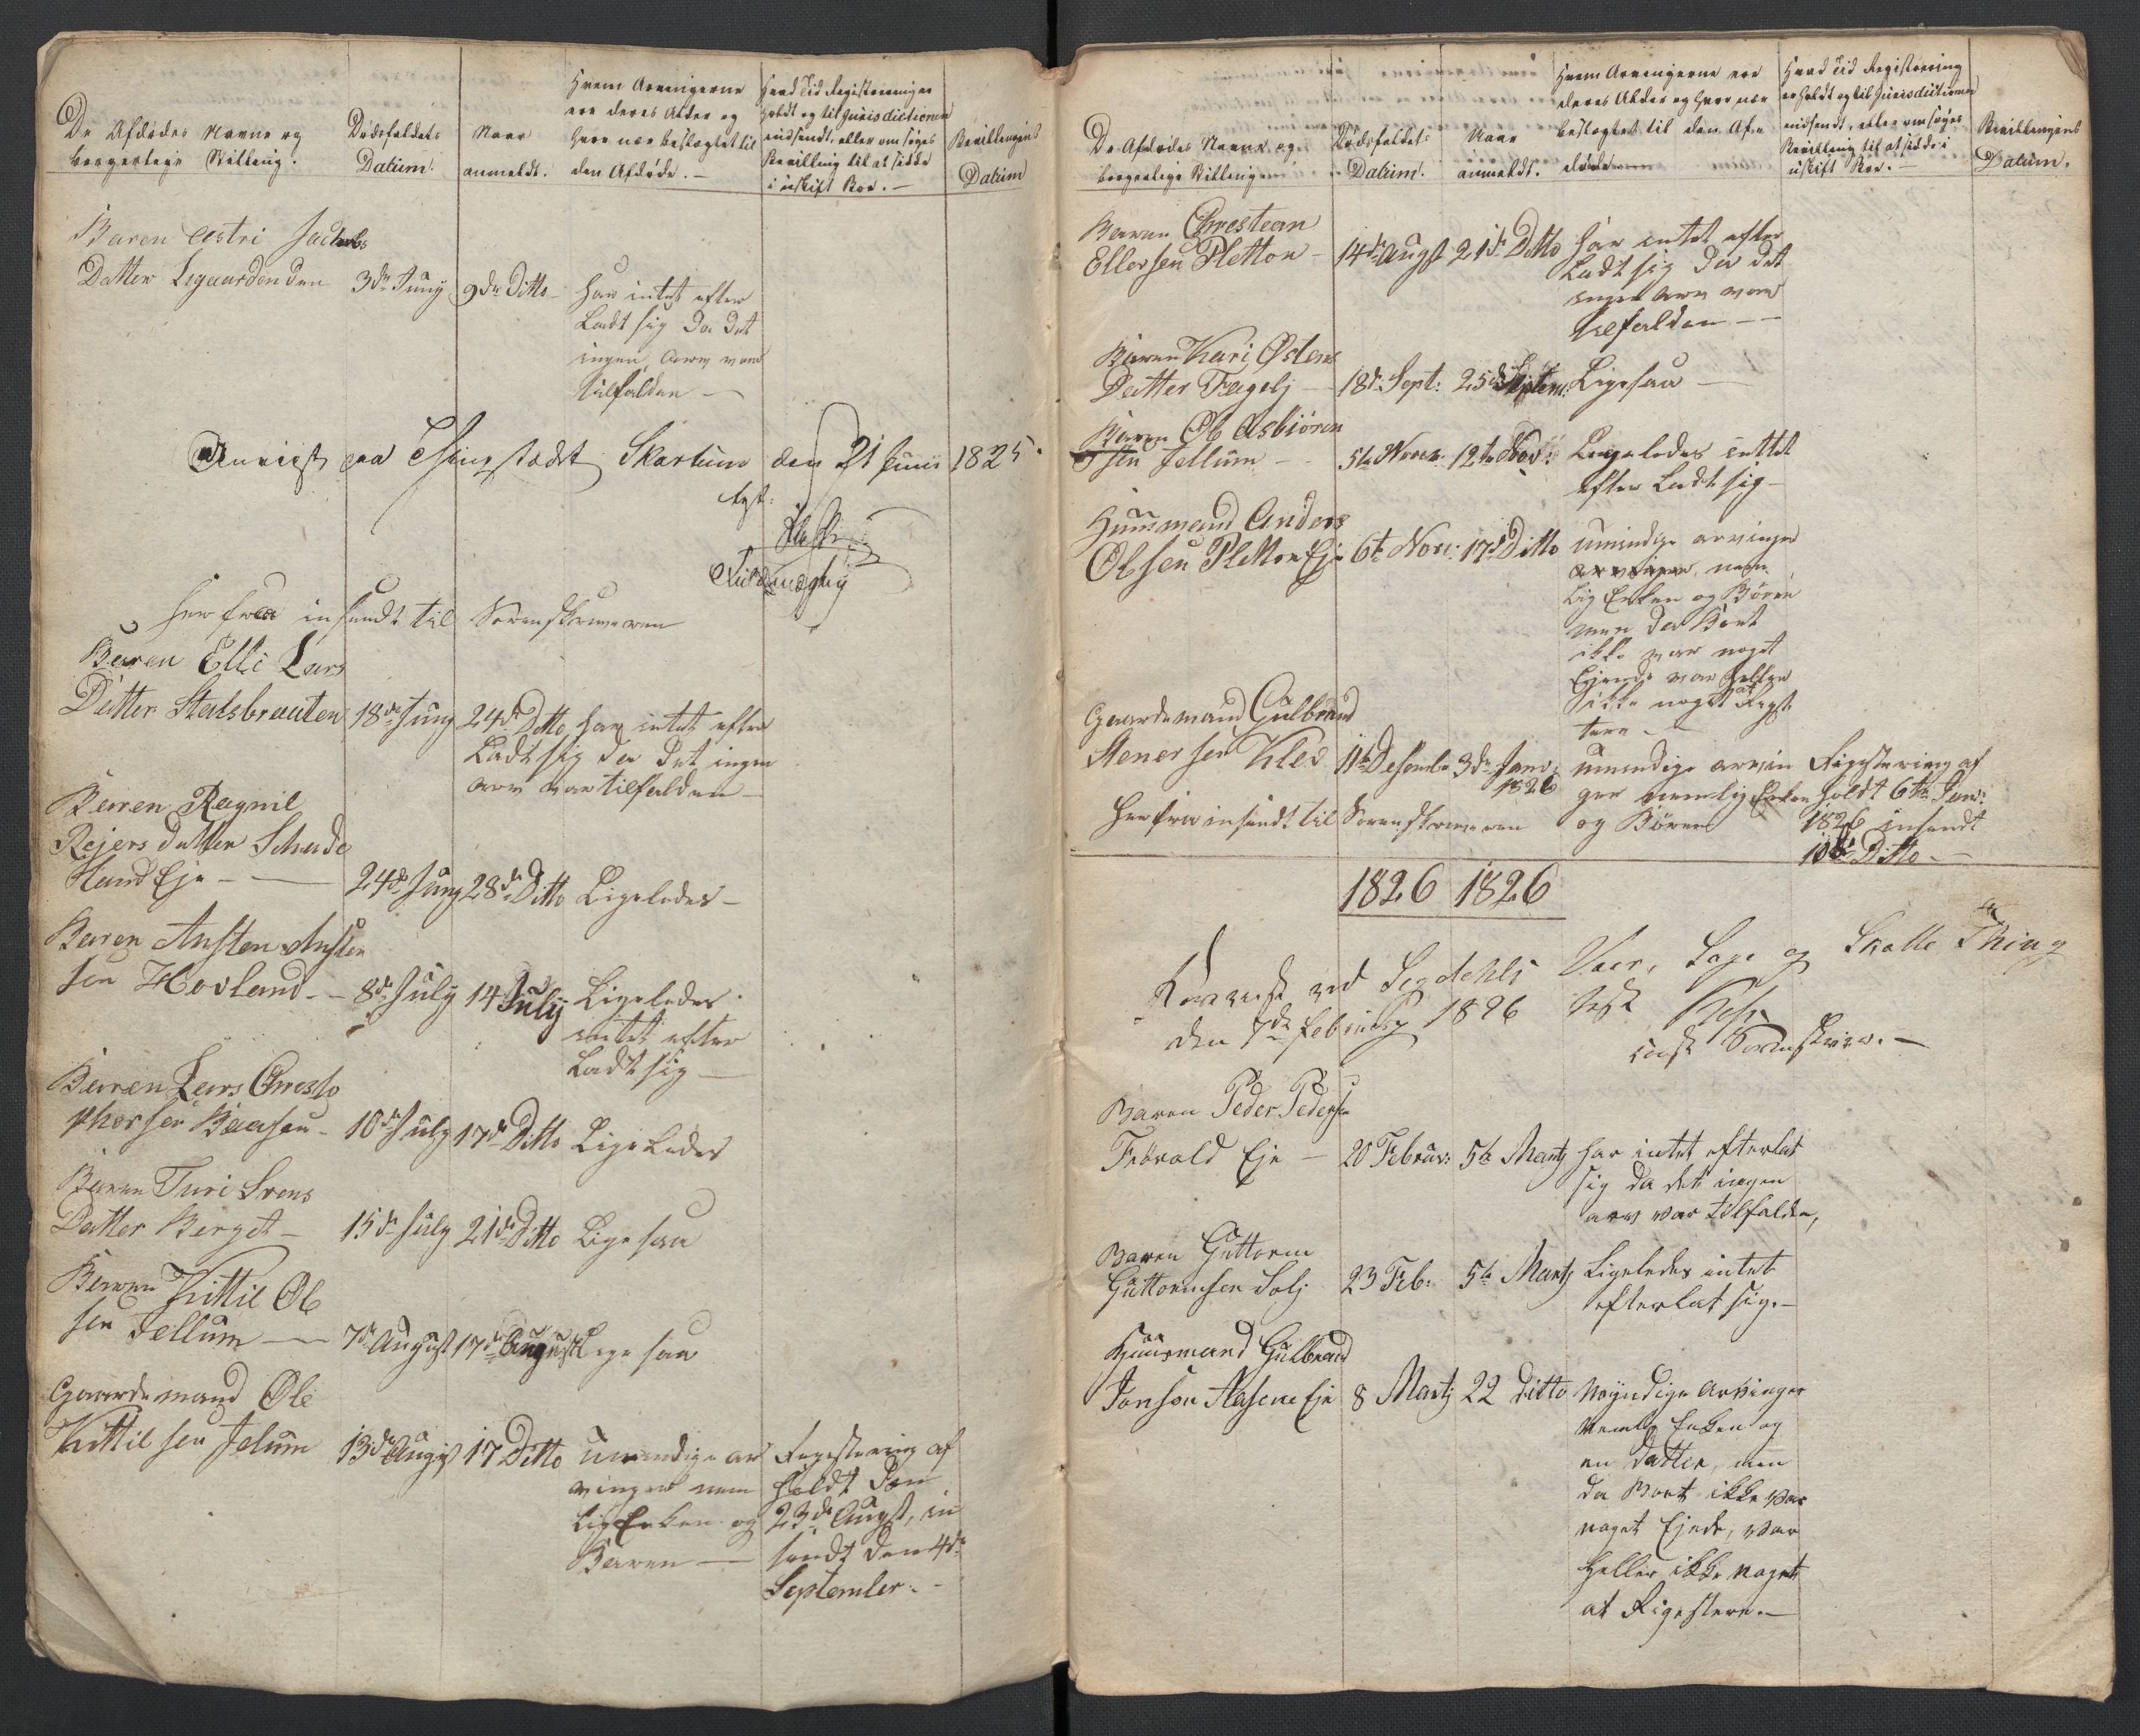 De Afdødes Navne og
borgerlige Stilling.
Dødsfaldets
Datum.
Naar
anmeldt.
Hvem Arvingerne
ere deres Alder og
hvor nær beslægtet til
den Afdøde. —
Hvad Tid Registreringen
holdt og til Jurisdictionen
indsendt, eller om søges
Bevilling til at sidde
i uskift Boe. —
Bevillingens
Datum
Baren Astri Jacobs
Datter Ligaarden den 3de Juny 9de Ditto — Har intet efter
Ladt sig Da Det
ingen Arv var
tilfalden —
Anviist paa Thingstædet Skartum den 21 Junii 1825.
Fuldmægtig
Her fra insendt til Sorenskriveren
Baren Elli Lars
Datter Stalsbraaten 18de Juny 24de Ditto har intet efter
Ladt sig da Det ingen
arv var tilfalden —
Barren Ragnil
Rejers Datter Schade
Hand Eje — 24de Juny 28de Ditto Ligeledes —
Baren Ansten Ansten
sen Hovland — 8de July 14 July Ligeledes
intet efter
Ladt sig —
Barren Lars Christo
phersen Baasen — 10de July 17de Ditto Ligeledes
Baren Turi Svens
Datter Berget — 15de July 21de Ditto Lige saa
Barren Kittil Ol
sen Jellum — 7de August 17de August Lige saa
Gaardemand Ole
Kittil sen Jelum 13de Augst 17 Ditto umendige ar
vinger nem
lig Enken og
Baren —
Regestering af
holdt den
23de Augst, in
sendt den 4de
September. —
De Afdødes Navne og
borgerlige Stilling
Dødsfaldets
Datum.
Naar
anmeldt.
Hvem Arvingerne ere
deres Alder og hvor nær
beslægtet til den Af
døde
Hvad Tid Registrering
er holdt og til Jurisdictionen
indsendt, eller om søges
Bevilling til at sidde i
uskift Boe. —
Bevillingens
Datum.
Baren Chrestean
Ellersen Pletten — 14de Augst 21de Ditto har intet efter
Ladt sig Da Det
ingen arv var
tilfalden —
Baren Kari Østens
Datter Fagelj — 18de Sept: 25de Septem: Ligesaa —
Baren Ol Asbiøren
sen Jellum — 5te Novr: 12te Nov: Ligeledes inttet
efter Ladt sig —
Huusmand Anders
Olsen Pletten Eje 6te Nov: 17de Ditto umendige arvinger
nem
lig Enken og Børen
men da Boet
ikke var noget
Ejende var heller
ikke noget at Regest
tere —
Gaardemand Gulbrand
Stener sen Klev 11te Desember 3de Janv:
1826
umendige arvin
ger nemlig Enken
og Børen
Regestering af
holdt 6te Jan:
1826 insendt
10de Ditto —
Herfra insendt til Sorenskriveren
1826 1826
ved Sigdahls Vaar, Sage og Skatte Thing
den 7de February 1826
const Sorenskriver. —
Baren Peder Pedersen
Frövold Eje — 20 Februar: 5te Martj har intet efterlat
sig da det ingen
arv var tilfalden,
Baren Guttorm
Guttormsen Solj 23 Feb: 5te Martj Ligeledes intet
efterlat sig. —
Huusmand Gulbrand
Jonsen Aasene Eje 8 Martj 22 Ditto Myndige Arvinger
nemlig Enken og
en Datter, men
da Boet ikke var
noget Ejende, var
heller ikke noget
at Rigestere. —